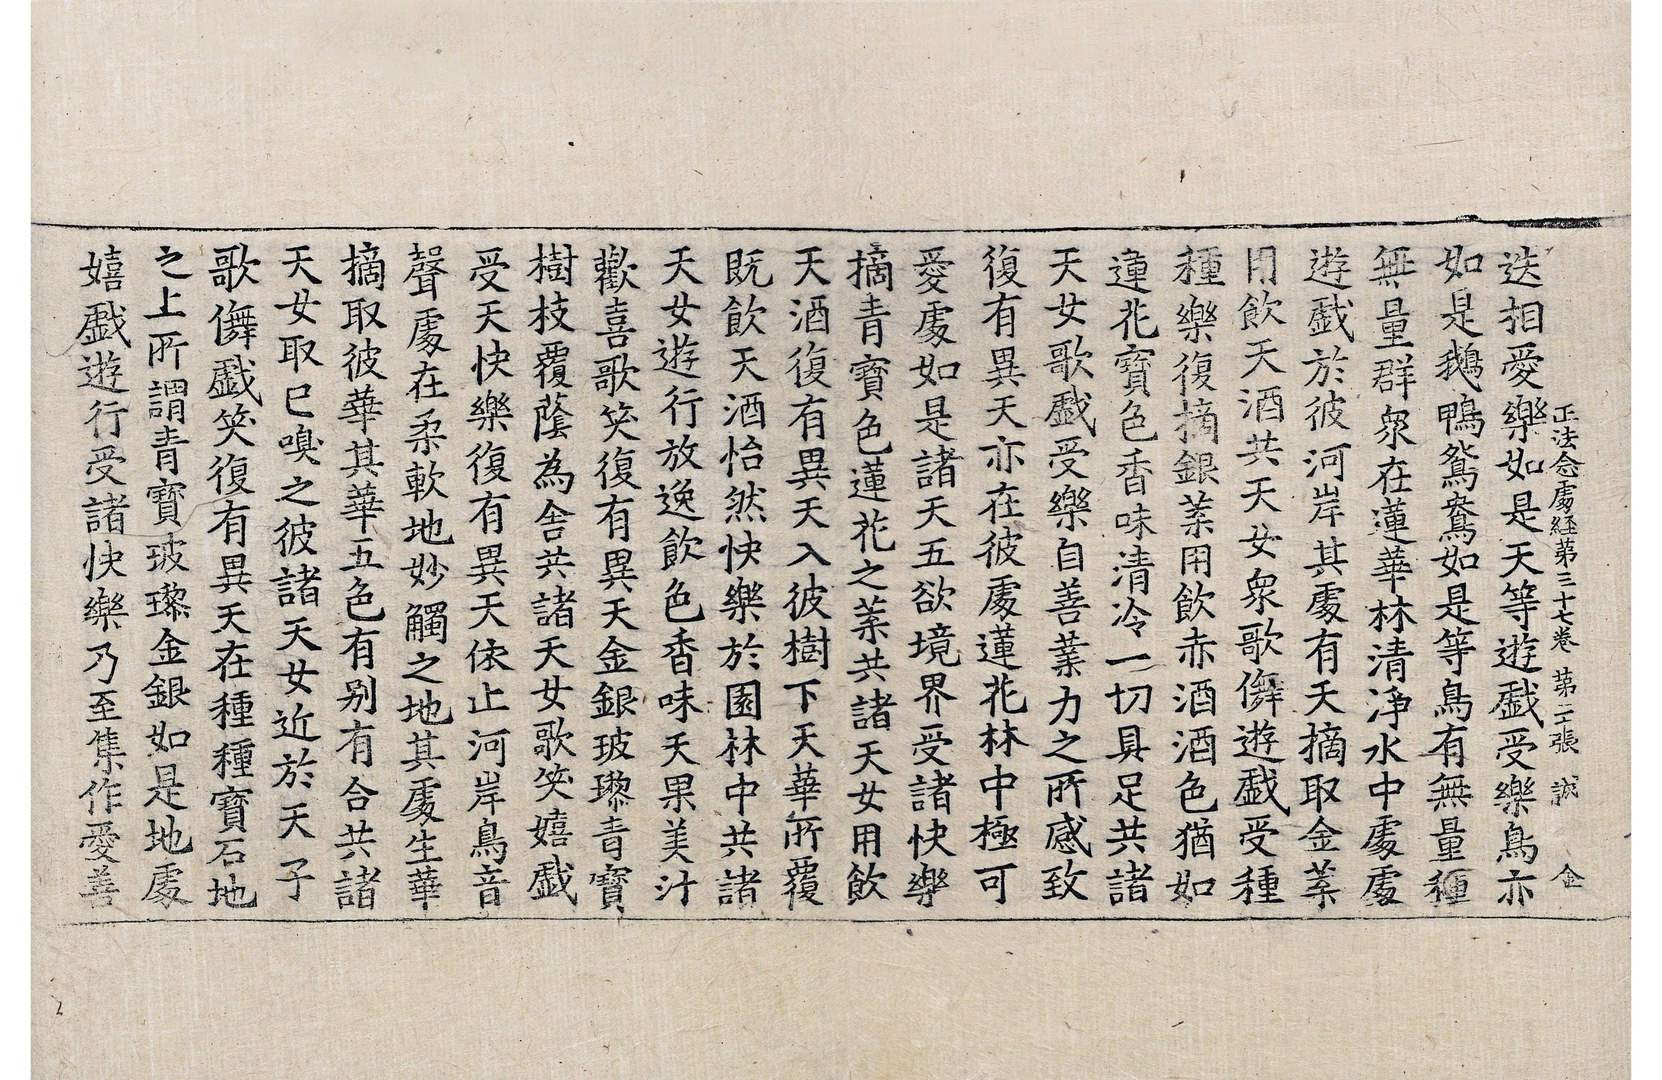 正法念處經苐三十七卷 苐二張 誠 金
迭相愛樂如是天等遊戱受樂鳥亦
如是鵝鴨鴛鴦如是等鳥有無量種
無量群衆在蓮華林清淨水中處處
遊戱於彼河岸其處有天摘取金葉
用飲天酒共天女衆歌儛遊戱受種
種樂復摘銀葉用飲赤酒酒色猶如
蓮花寶色香味清冷一切具足共諸
天女歌戱受樂自善業力之所感致
復有異天亦在彼處蓮花林中極可
愛處如是諸天五欲境界受諸快樂
摘青寶色蓮花之葉共諸天女用飲
天酒復有異天入彼樹下天華所覆
既飲天酒怡然快樂於園林中共諸
天女遊行放逸飲色香味天果美汁
歡喜歌笑復有異天金銀玻瓈青寶
樹枝覆蔭為舍共諸天女歌笑嬉戱
受天快樂復有異天依止河岸鳥音
聲處在柔軟地妙觸之地其處生華
摘取彼華其華五色有別有合共諸
天女取已嗅之彼諸天女近於天子
歌儛戱笑復有異天在種種寶石地
之上所謂青寶玻瓈金銀如是地處
嬉戱遊行受諸快樂乃至集作愛善